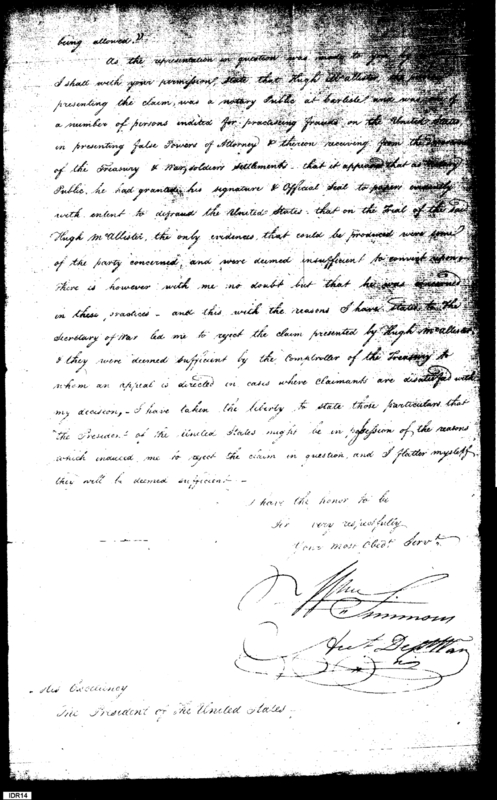 being allowed."
As the representation in question was made to you by
I shall with your permission, state that Hugh McAllister, the person
presenting the claim, was a notary Public at Carlisle and was one of
a number of persons indited for practising frauds, on the United States
in presenting false Powers of Attorney & thereon receiving from the
of the Treasury & War, soldiers settlements - that it appeared that as
Public, he had granted his signature & Official Seal to papers evidently
with entent to defraud the United States, that on the Trial of the said
Hugh McAllister, the only evidences that could be produced were some
of the party concerned, and were deemed insufficient to convict upon
There is however with me no doubt but that he was concerned
in these practices - and this with the reasons I have stated to the
Secretary of War led me to reject the claim presented by Hugh McAllister
& they were deemed sufficient by the Comptroller of the Treasury to
whom an appeal is directed in cases where claimants are dissatisfied with
my decision, - I have taken the liberty to state those particulars that
the President of the United States might be in possession of the reasons
which induced me to reject the claim in question, and I flatter myself
they will be deemed sufficient -
I have the honor to be
Sir very respectfully
Your most Obedt. Servt.
Wm Simmons
Acct. Dept War
His Excellency
The President of the United States
IDR14